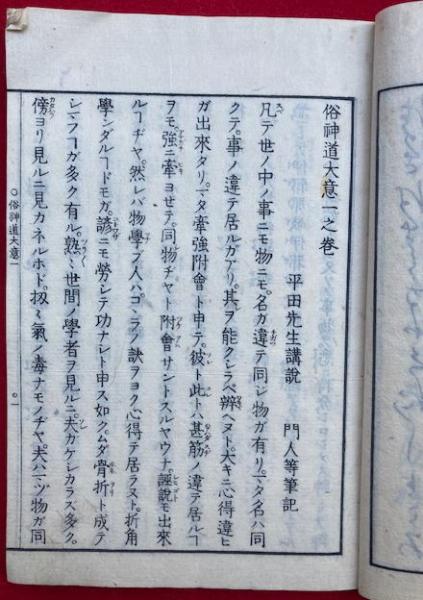 俗神道大意一之巻
平田先生講説　門人等筆記
凡テ世ノ中ノ事ニモ物ニモ。名ガ違テ同ジ物ガ有リ。マタ名ハ同
クテ。事ノ違テ居ルガアリ。其ヲ能クシラベ辨ヘヌト。大キニ心得違ヒ
ガ出來タリ。マタ牽強附會ト申テ。彼ト此トハ甚筋ノ違テ居ルヿ
ヲモ。強ニ牽ヨセテ。同物ヂヤト附會サントスルヤウナ。誣説モ出來
ルヿヂヤ。然レバ物學ブ人ハ。コヽラノ訣ヲヨク心得テ居ラヌト。折角
學ンダルヿドモガ。諺ニモ勞シテ功ナシト申ス如ク。ムダ骨折ト成テ
シマフヿガ多ク有ル。熟〻世間ノ學者ヲ見ルニ。夫ガケシカラズ多ク。
傍ヨリ見ルニ見カネルホド。扨〻氣ノ毒ナモノヂヤ。夫ハ二ツ物ガ同
○俗神道大意一
○一